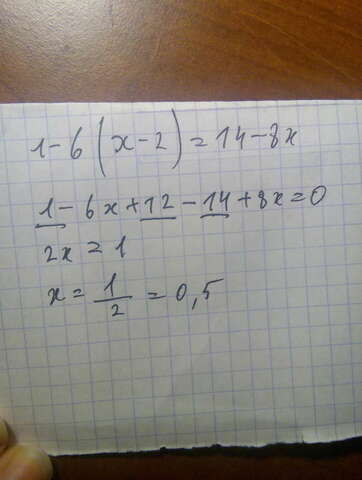 1-6(x-2)=14-8x
1-6x+12-14+8x=0
2x=1
x=1/2=0,5